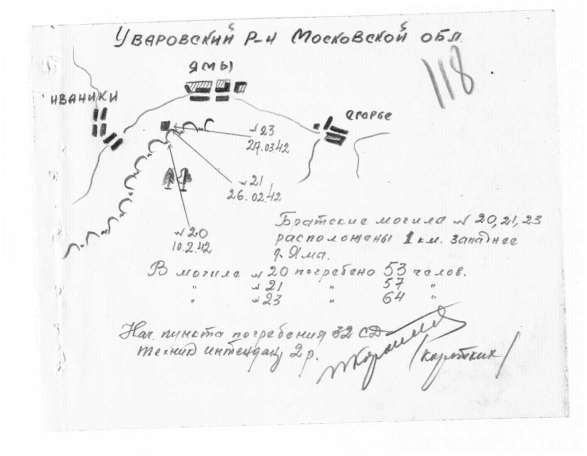 Уваровский р-н Московской обл
118
Ямы
Иваники
Егорье
№ 23
27.03.42
№ 21
26.02.42
№ 20
10.2.42
Братские могила № 20, 21, 23
расположены 1 км. западнее
д. Яма.
В могиле № 20 погребено 53 челов.
" № 21 " 57 "
" № 23 " 64 "
Нач. пункта погребения 32 СД
техник интендант 2 р.
/коротких/